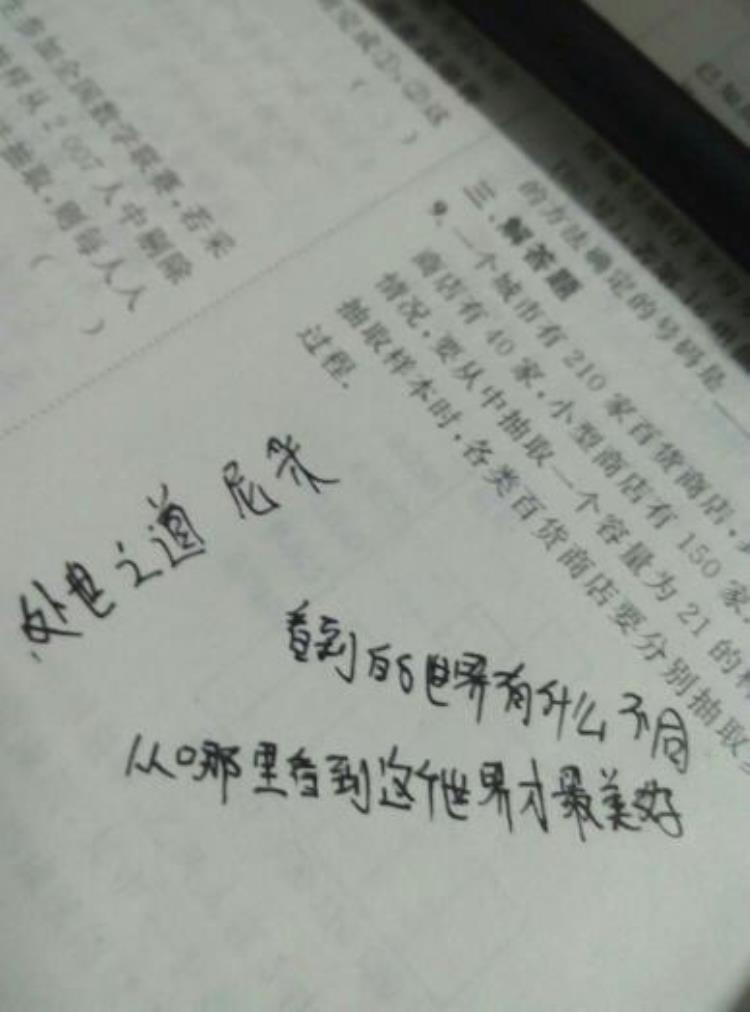 完成①、②这
( )
生参加全国数学联赛,若采
样从2 007人中剔除
抽取,则每人入
( )
的方法确定的号码是
三、解答题
9. 一个城市有210家百货商店,
商店有40家,小型商店有150家
情况,要从中抽取一个容量为21的
抽取样本时,各类百货商店要分别抽取
过程.
处世之道 尼采
看到的世界有什么不同
从哪里看到这个世界才最美好